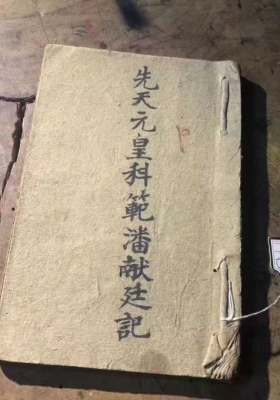 先天元皇科範潘献廷記